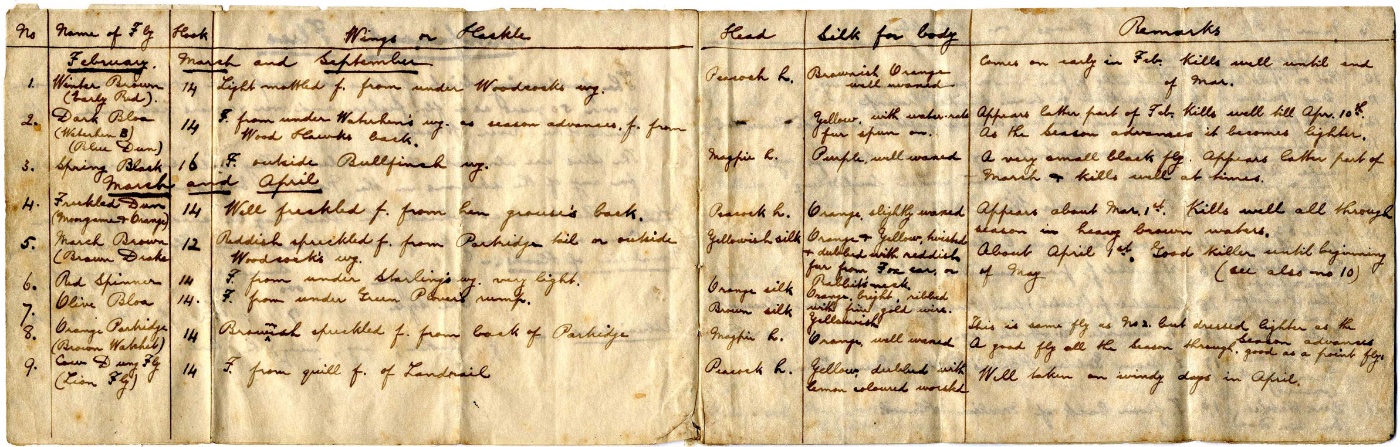 No Name of Fly Hook Wings or Hackle Head Silk for body Remarks
February. March and September
1. Winter Brown 14 Light mottled f. from under Woodcock's wg. Peacock h. Brownish Orange Comes on early in Feb. Kills well until end
(Early Red). well waxed of Mar.
2. Dark Bloa 14 F. from under Waterhen's wg. as season advances. f. from - " - Yellow, with water-rats Appears latter part of Feb. Kills well till Apr. 10th.
(Waterhen B) Wood Hawks back. fur spun on. As the season advances it becomes lighter.
(Blue Dun)
3. Spring Black 16 F. outside Bullfinch wg. Magpie h. Purple, well waxed A very small black fly. Appears latter part of
March & kills well at times.
March and April
4. Freckled Dun 14 Well freckled f. from hen grouse's back. Peacock h. Orange, slightly waxed Appears about Mar. 1st. Kills well all through
season in heavy brown waters.
5. March Brown 12 Reddish spreckled f. from Partridge tail or outside Yellowish silk Orange & Yellow, twisted About April 1st. Good killer until beginning
(Brown Drake Woodcock's wg. & dubbed with reddish of May (see also no 10)
fur from Fox ear, or
Rabbit's neck
6. Red Spinner 14 F. from under Starling's wg. very light. Orange silk Orange, bright, ribbed
with fine gold wire.
7. Olive Bloa 14. F. from under Green Plover's rump. Brown silk Yellowish This is same fly as No 2. but dressed lighter as the
season advances
8. Orange Partridge 14 Brownish spreckled f. from back of Partridge Magpie h. Orange, well waxed A good fly all the season through, good as a point fly.
(Brown Watchet)
9. Cow Dung Fly 14 F. from quill f. of Landrail Peacock h. Yellow, dubbed with Well taken on windy days in April.
(Lion Fly) lemon coloured worsted